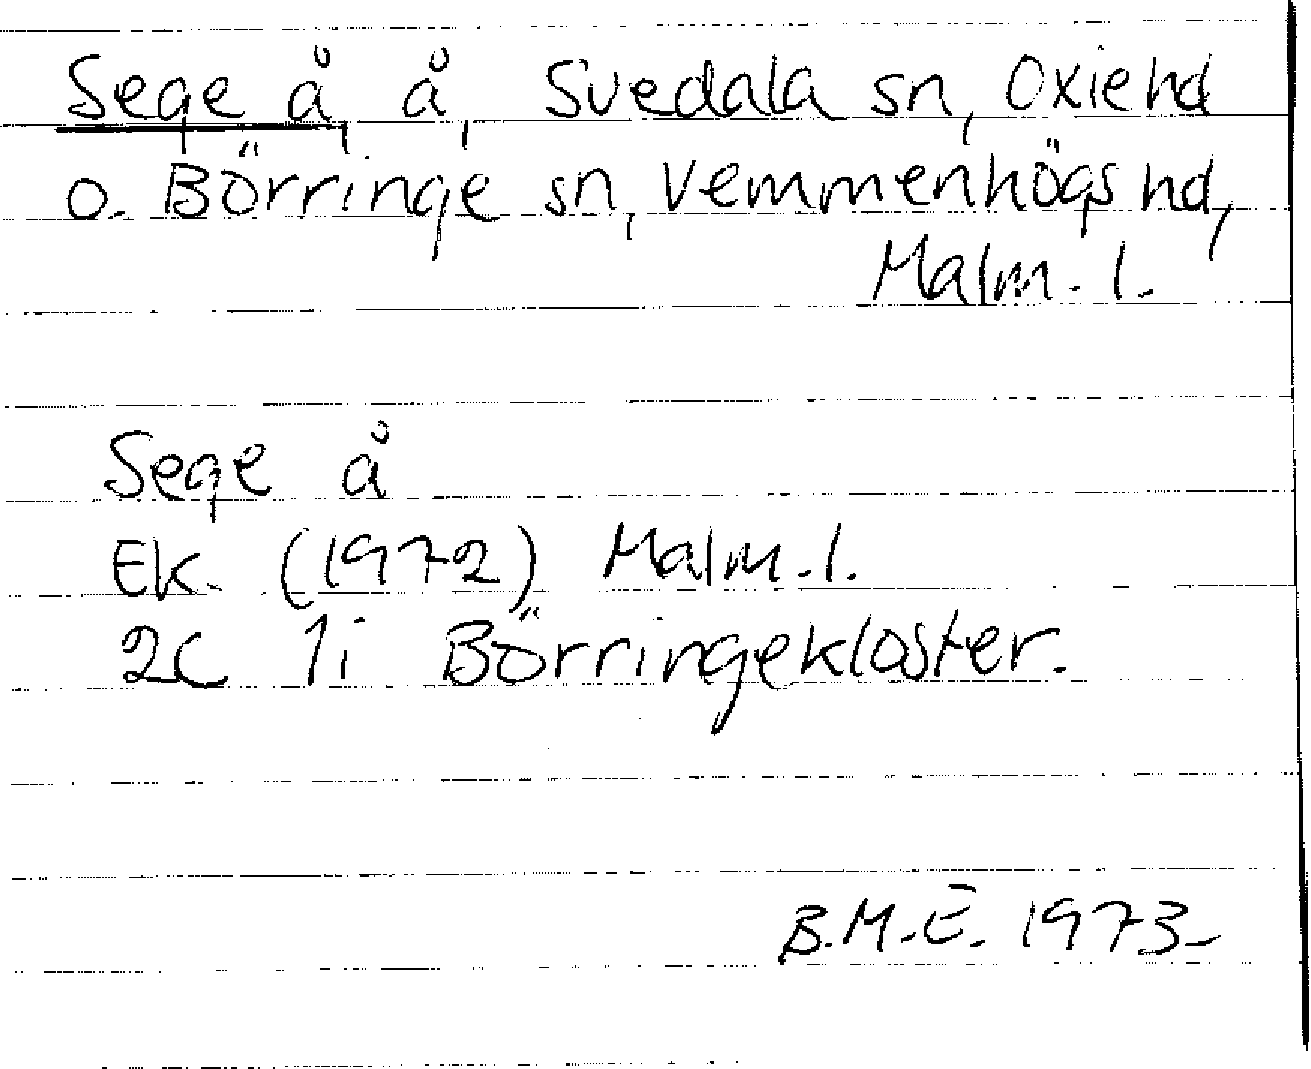 Sege å, å, Svedala sn, Oxie hd
o. Börringe sn, Vemmenhögs hd,
Malm. l.
Sege å
Ek. (1972) Malm. l.
2C 1i Börringekloster.
B.M.E. 1973.